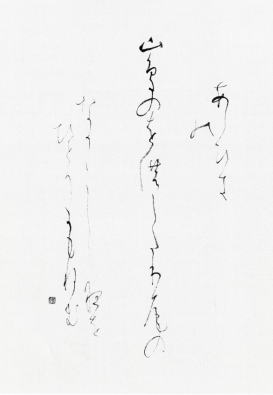 あしひき
の
山鳥のをのしたり尾の
なか〱し夜を
ひとりかもねむ